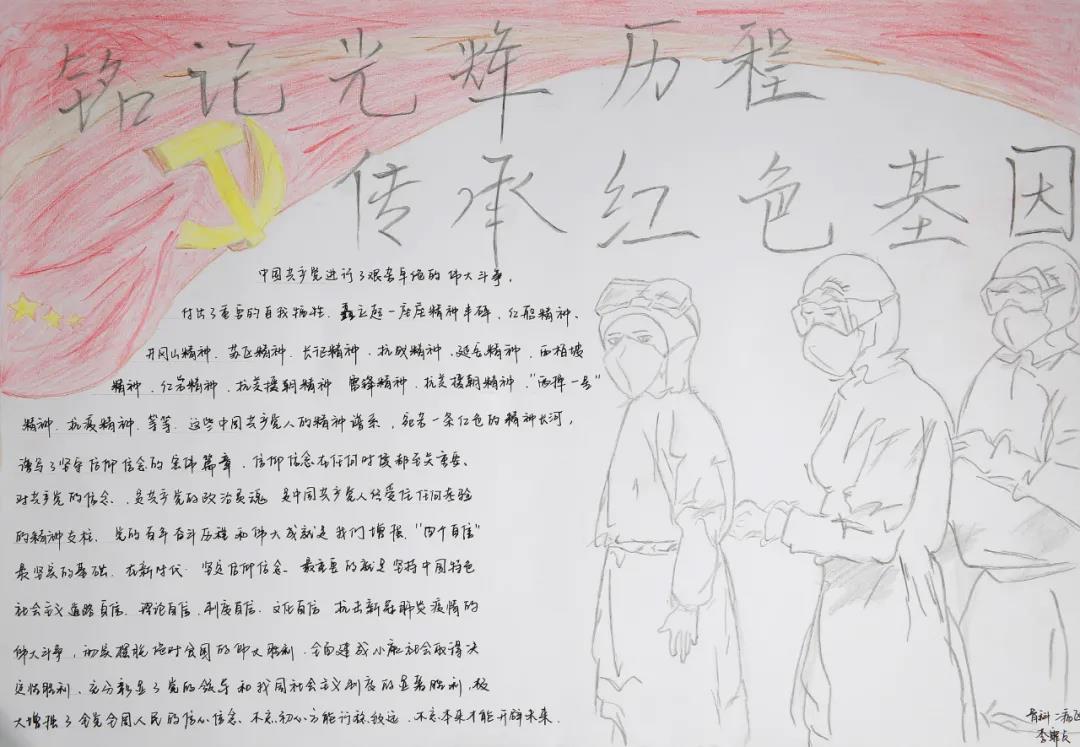 铭记光辉历程
传承红色基因
中国共产党进行了艰苦卓绝的伟大斗争,
付出了重要的自我牺牲、矗立起一座座精神丰碑,红船精神、
井冈山精神、苏区精神、长征精神、抗战精神、延安精神、西柏坡
精神、红岩精神、抗美援朝精神 雷锋精神、抗美援朝精神、"两弹一星"
精神、抗疫精神、等等、这些中国共产党人的精神谱系,宛若一条红色的精神长河,
谱写了坚守信仰信念的宏伟篇章、信仰信念在任何时候都至关重要、
对共产党的信念、是共产党的政治灵魂 是中国共产党人经受住任何考验
的精神支柱、党的百年奋斗历程和伟大成就是我们增强"四个自信"
最坚实的基础、在新时代 坚定信仰信念、最重要的就是坚持中国特色
社会主义道路自信、理论自信、制度自信、文化自信 抗击新冠肺炎疫情的
伟大斗争,切实摆脱绝对贫困的伟大胜利、全面建成小康社会取得决
定性胜利、充分彰显了党的领导和我国社会主义制度的显著胜利,极
大增强了全党全国人民的信心信念、不忘初心方能行稳致远、不忘本来才能开辟未来.
骨科二病区